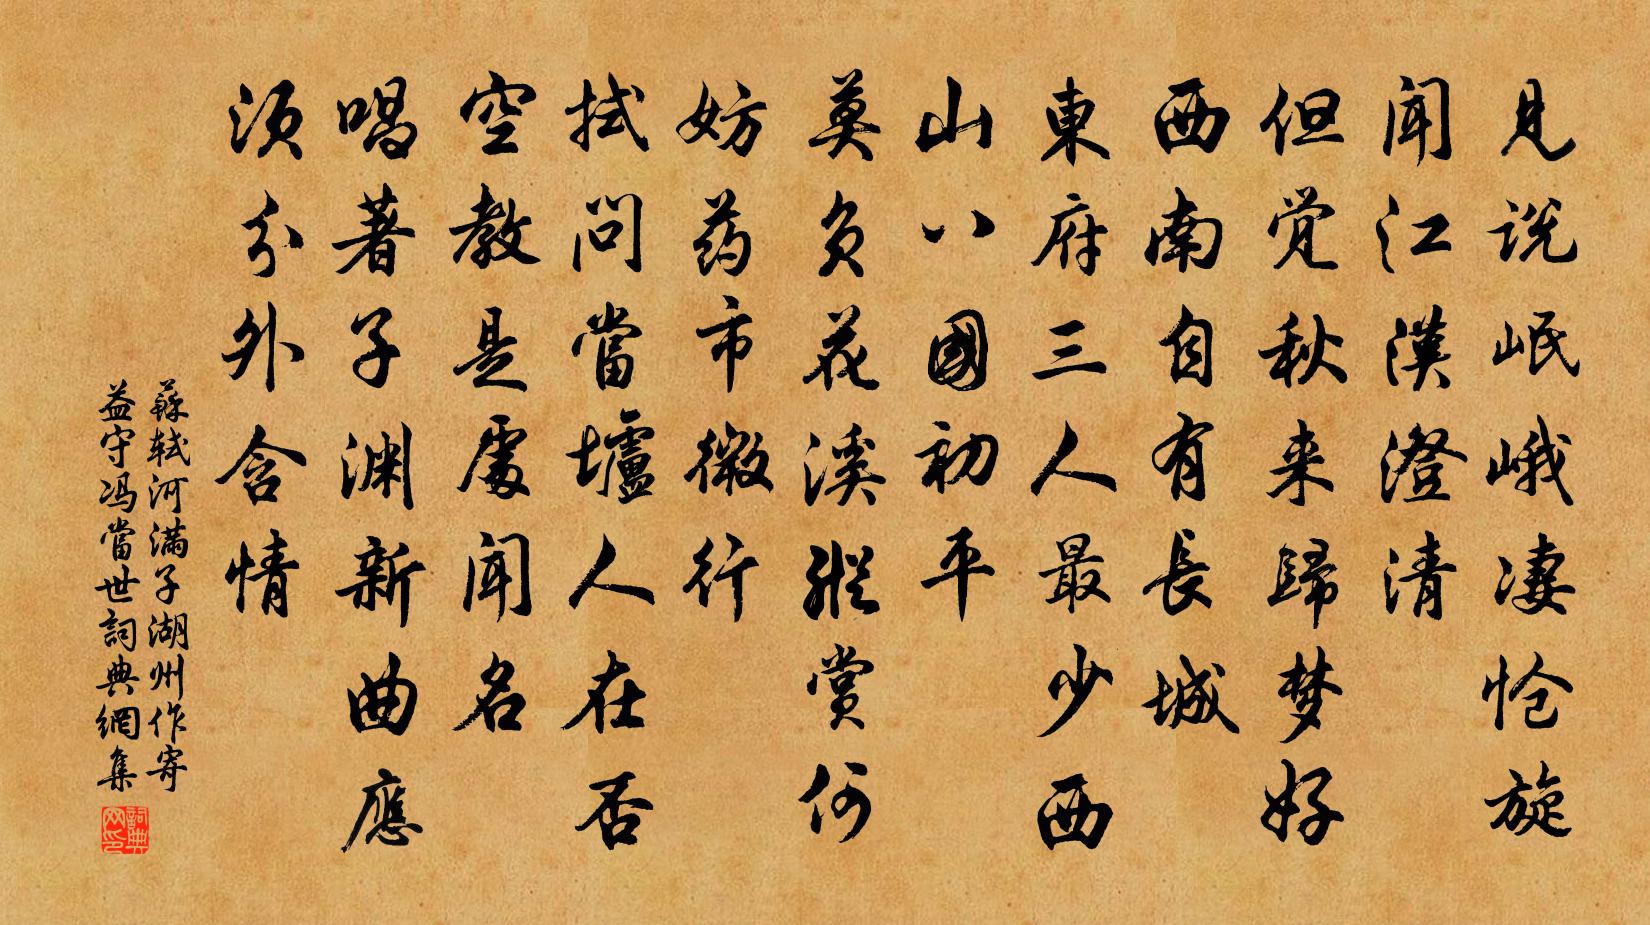 見说岷峨凄怆旋
闻江漢澄清
但觉秋来歸梦好
西南自有長城
東府三人最少西
山八國初平
莫负花溪縱賞何
妨药市微行
拭問當壚人在否
空教是處闻名
唱著子渊新曲應
须分外含情
蘇轼河满子湖州作寄
益守冯當世詞典網集
詞典网印